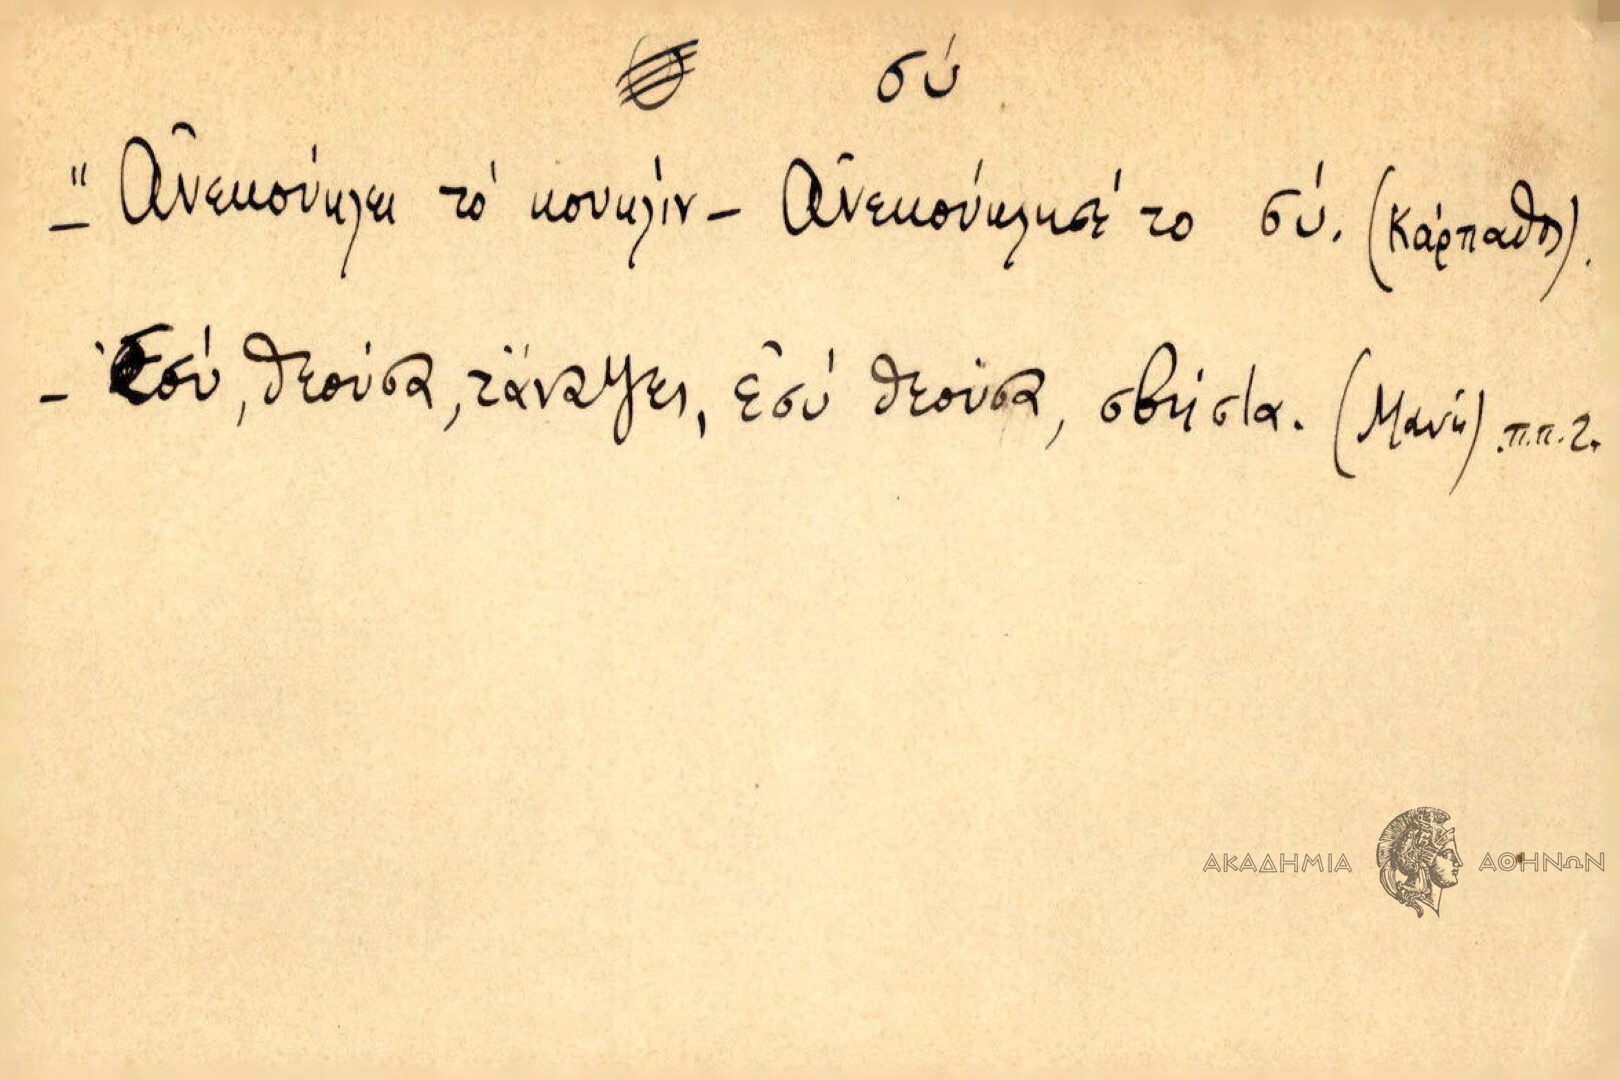 σύ
–" Ἀνεκούκλει τό κουκλίν – Ἀνεκούκλησέ το σύ. (Κάρπαθος).
– Ἐσύ, θεούσα, τἄναψες, ἐσύ θεούσα, σβήστα. (Μάνη) .π.π.2.
ΑΚΑΔΗΜΙΑ ΑΘΗΝΩΝ